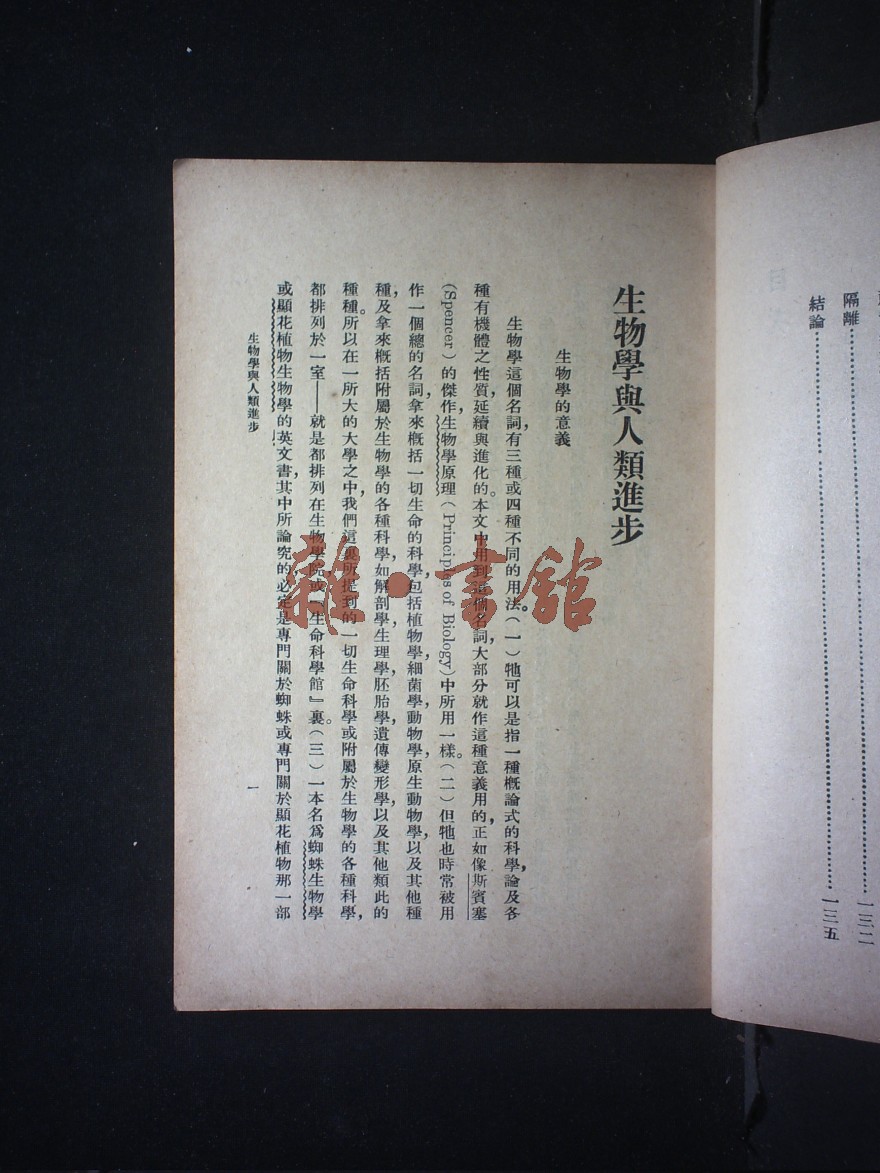 隔離……一三二
結論……一三五
生物學與人類進步
生物學的意義
生物學這個名詞，有三種或四種不同的用法。（一）牠可以是指一種概論式的科學，論及各
種有機體之性質，延續與進化的。本文中用到這個名詞，大部分就作這種意義用的，正如像斯賓塞
(Spencer)的傑作，生物學原理（Principles of Biology）中所用一樣。（二）但牠也時常被用
作一個總的名詞，拿來概括一切生命的科學，包括植物學，細菌學，動物學，原生動物學，以及其他種
種，及拿來概括附屬於生物學的各種科學，如解剖學，生理學，胚胎學，遺傳變形學，以及其他類此的
種種。所以在一所大的大學之中，我們這裏所提到的一切生命科學或附屬於生物學的各種科學，
都排列於一室——就是都排列在生物學院或『生命科學館』裏。（三）一本名爲蜘蛛生物學
或顯花植物生物學的英文書，其中所論究的，必定是專門關於蜘蛛或專門關於顯花植物那一部
生物學與人類進步
一
雜·書館